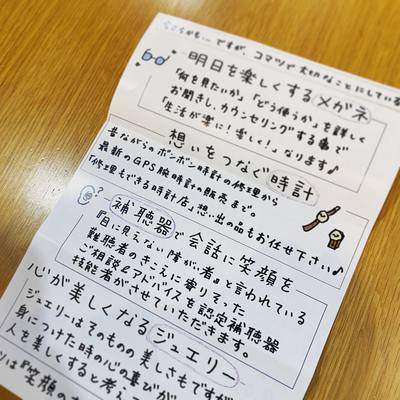 ですが、コマツで大切なことにしている
明日を楽しくするメガネ
「何を見たいか」「どう使うか」を詳しく
お聞きし、カウンセリングする事で
「生活が楽に！楽しく！」なります♪
想いをつなぐ時計
昔ながらのボンボン時計の修理から
最新のGPS腕時計の販売まで。
「修理もできる時計店」想い出の品もお任せ下さい♪
補聴器で会話に笑顔を
『目に見えない障がい者』と言われている
難聴者のきこえに寄りそった
ご相談&アドバイスを認定補聴器
技能者がさせていただきます。
心が美しくなるジュエリー
ジュエリーはそのものの美しさもですが
身につけた時の心の喜びが
人を美しくすると考え
は『笑顔の